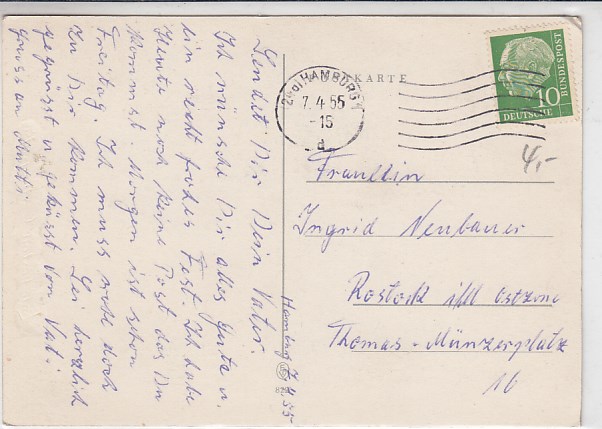 POSTKARTE
HAMBURG 1
7.4.55
-15
a
10
DEUTSCHE
BUNDESPOST
4,-
Fräulein
Ingrid Neubauer
Rostock i/M Ostzone
Thomas-Münzerplatz
10
Hamburg 7.4.55
Sendet Dir Dein Vater.
Ich wünsche Dir alles Gute u.
ein recht frohes Fest. Ich habe
Heute noch keine Post das Du
kommst. Morgen ist schon
Freitag. Ich muss wohl doch
zu Dir kommen. Sei herzlich
gegrüsst u geküsst von Vati
Gruss an Mutti